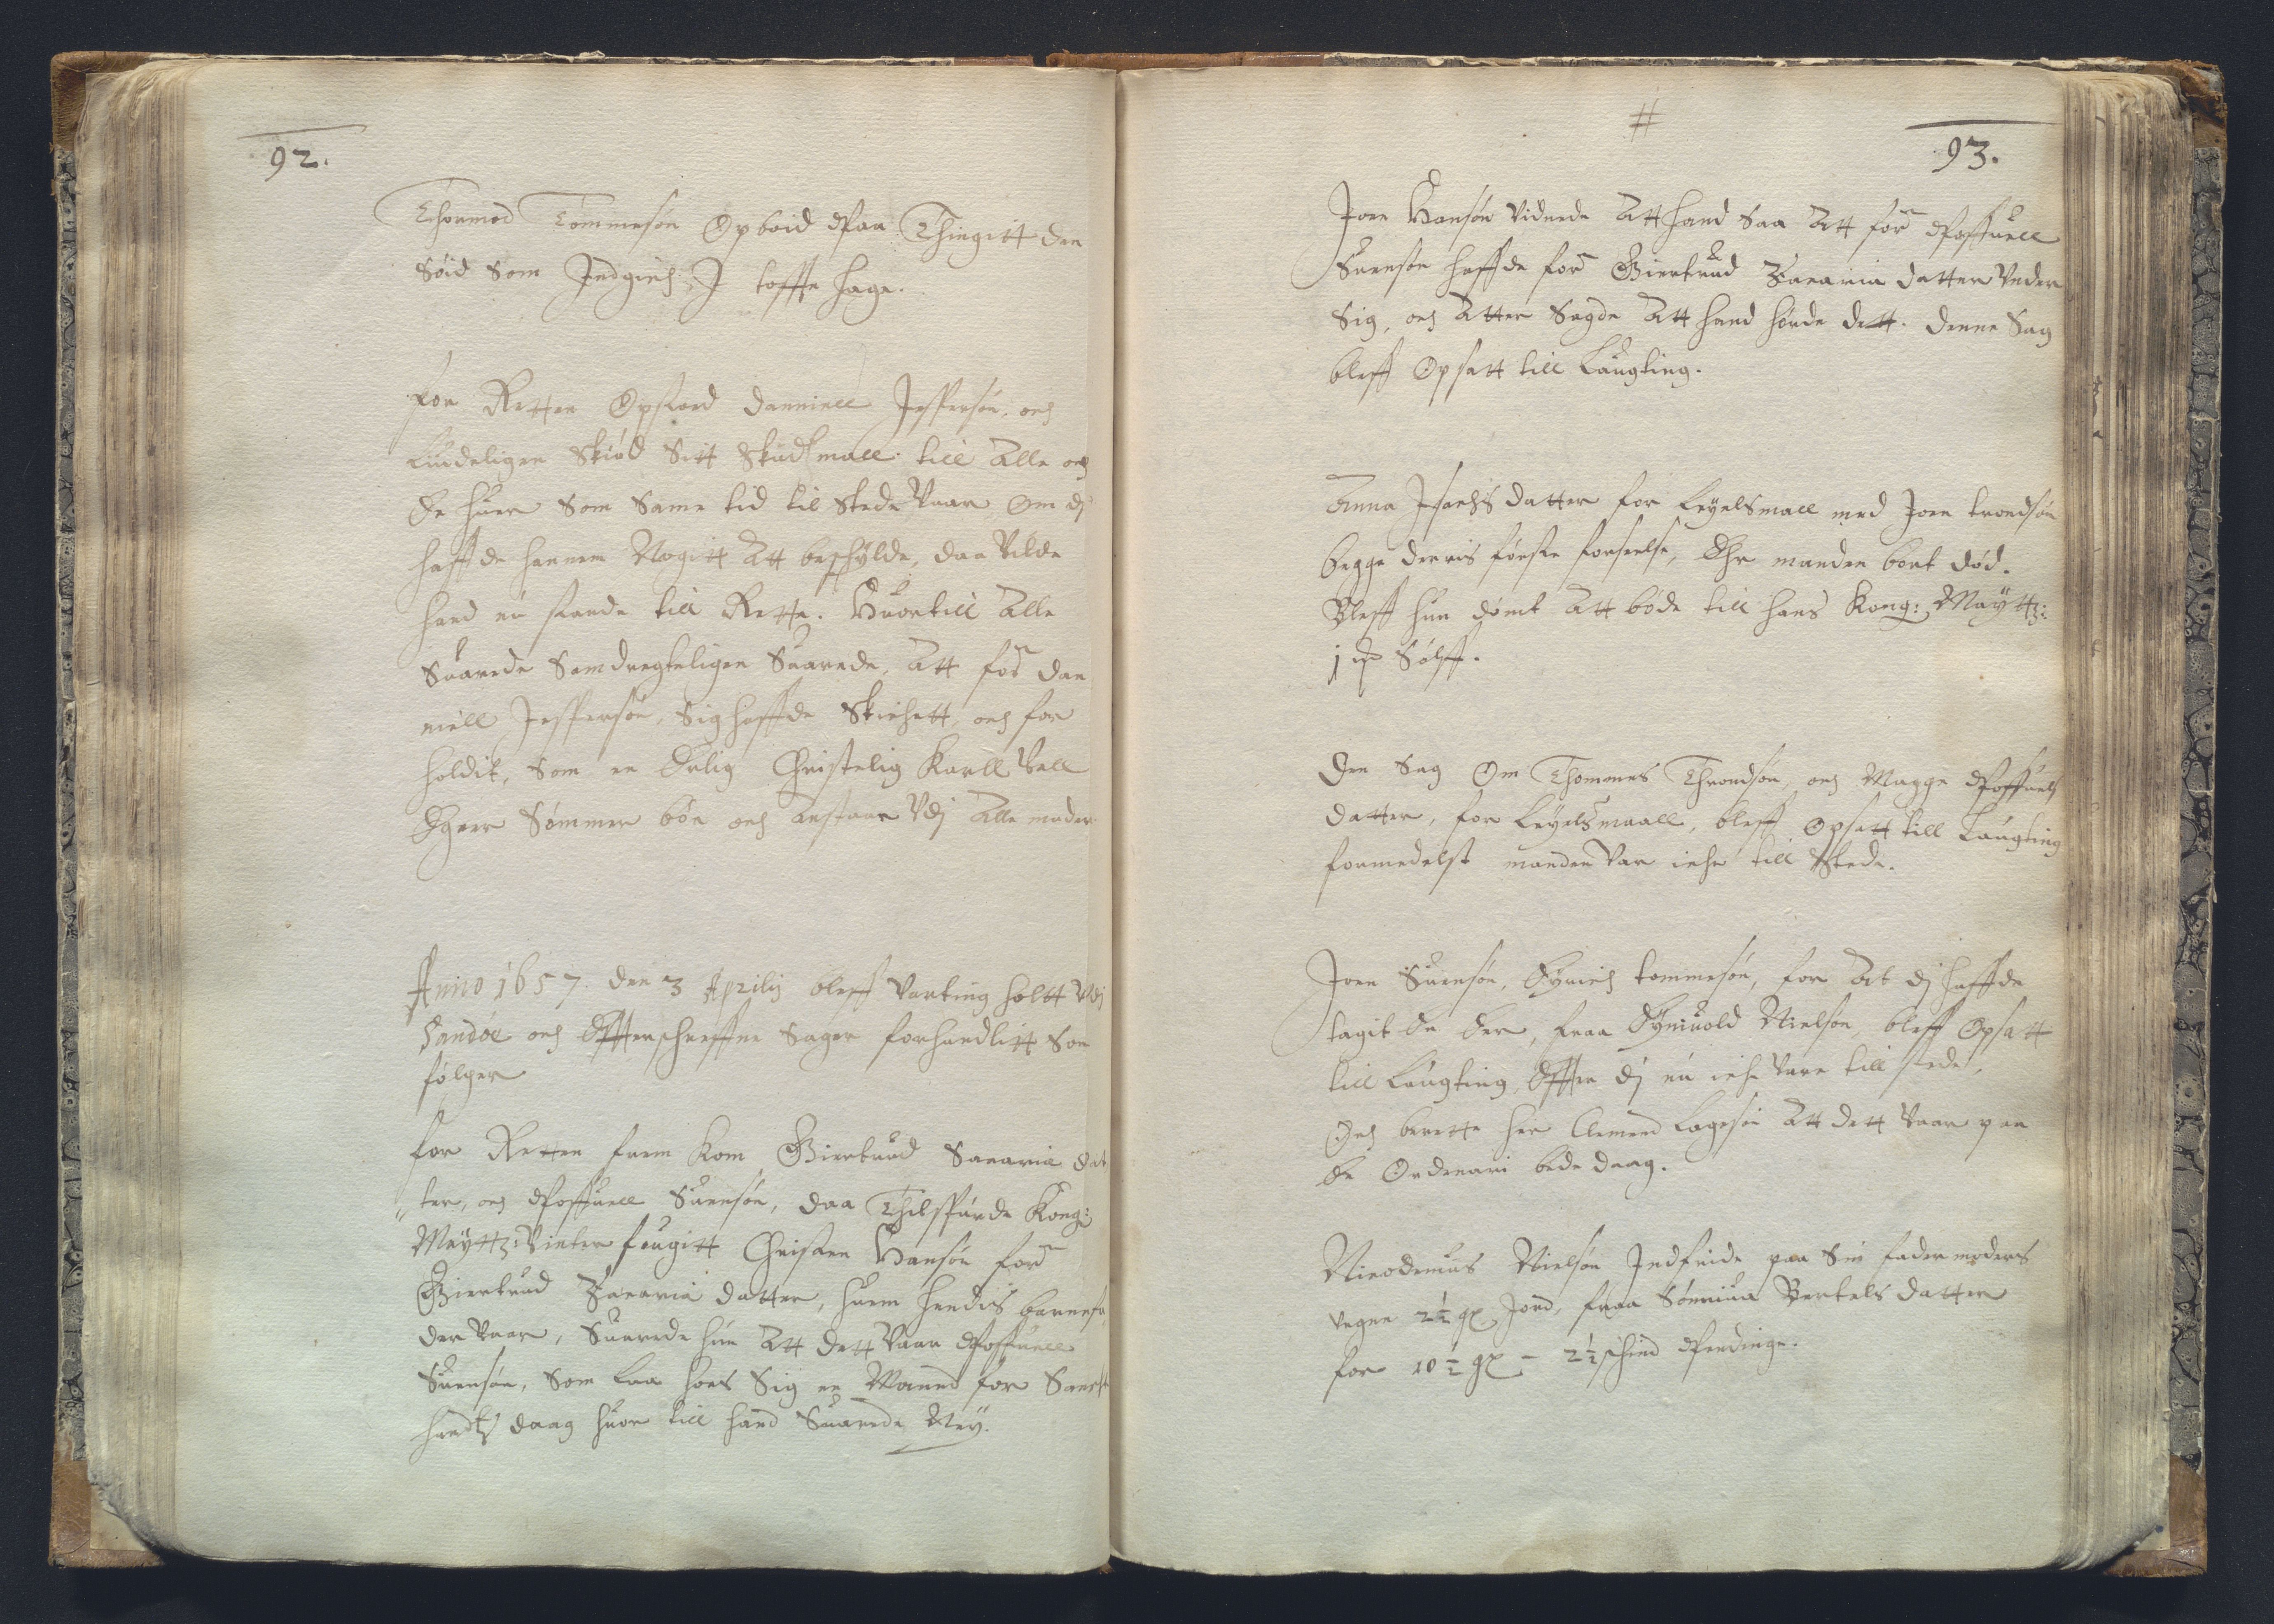 92.
Thormod Tommesøn Opbøid Paa Thingitt den
Søid som Indgich I toffte hage.
For Retten Opstod Danniell Jespersøn, och
Liudeligen Skiød Sitt Skudsmall till Alle och
En huer Som Same tid til Stede Vaar Om dj
haffde hannem Nogitt Att beschylde, daa Vilde
hand nu stande till Rette. Huortill Alle
Suarede Samdregteligen Suarede, Att for Dan
niell Jespersøn, Sig haffde Skichett, och for
holdit, Som en Erlig Christelig Karll Vell
Egner Sømmer bør och anstaar Vdj Alle mader
Anno 1657 den 3 Aprilis bleff Varting holtt Vdj
Sandøe och Effterschreffne Sager forhandlitt Som
følger
For Retten frem Kom Giertrud Sacaria dat
ter, och Poffuell Suensøn, daa Tilspurde Kong:
Maÿttz: Vnter fougitt Christen Hansøn for
Giertrud Zacaria datter, huem hendis barnefa
der Vaar, Suarede hun Att dett Vaar Poffuell
Suensøn, Som laa hoes Sig en Maaned for Sanct
handtz daag huor till hand Suarede Neÿ.
#
93.
Joen Hansøn Vidnede Att hand Saa Att for Poffuell
Suensøn haffde for Giertrud Zacaria datter Vnder
Sig, och Atter Sagde Att hand hørde dett. denne Sag
bleff Opsatt till Laugting.
Anna Isachs datter for Leyelsmall med Joen trondsøn
begge derris første forseelse, Ehr manden bort død.
Bleff hun dømt Att bøde till hans Kong: Maÿttz:
j Sølff.
Den Sag Om Thommes Throndsøn, och Magge Poffuels
datter, for Leyelsmaall, bleff Opsatt till Laugting
formedelst manden Var iche till Stede.
Joen Suensøn, Hynrich tommesøn, for At dj haffde
tagit En Øer, fraa Eyniuold Nielsøn, bleff Opsatt
till Laugting Effter dj nu iche Vare till stede,
Och berette her Clemend Lagesøn Att dett Vaar paa
En Ordenari bede daag.
Nicodemus Nielsøn Indfride paa Sin fader moders
vegne 2½ gl Jord, fraa Sønniua Bertels datter
for 10½ gl – 2½ schind Pendinge.